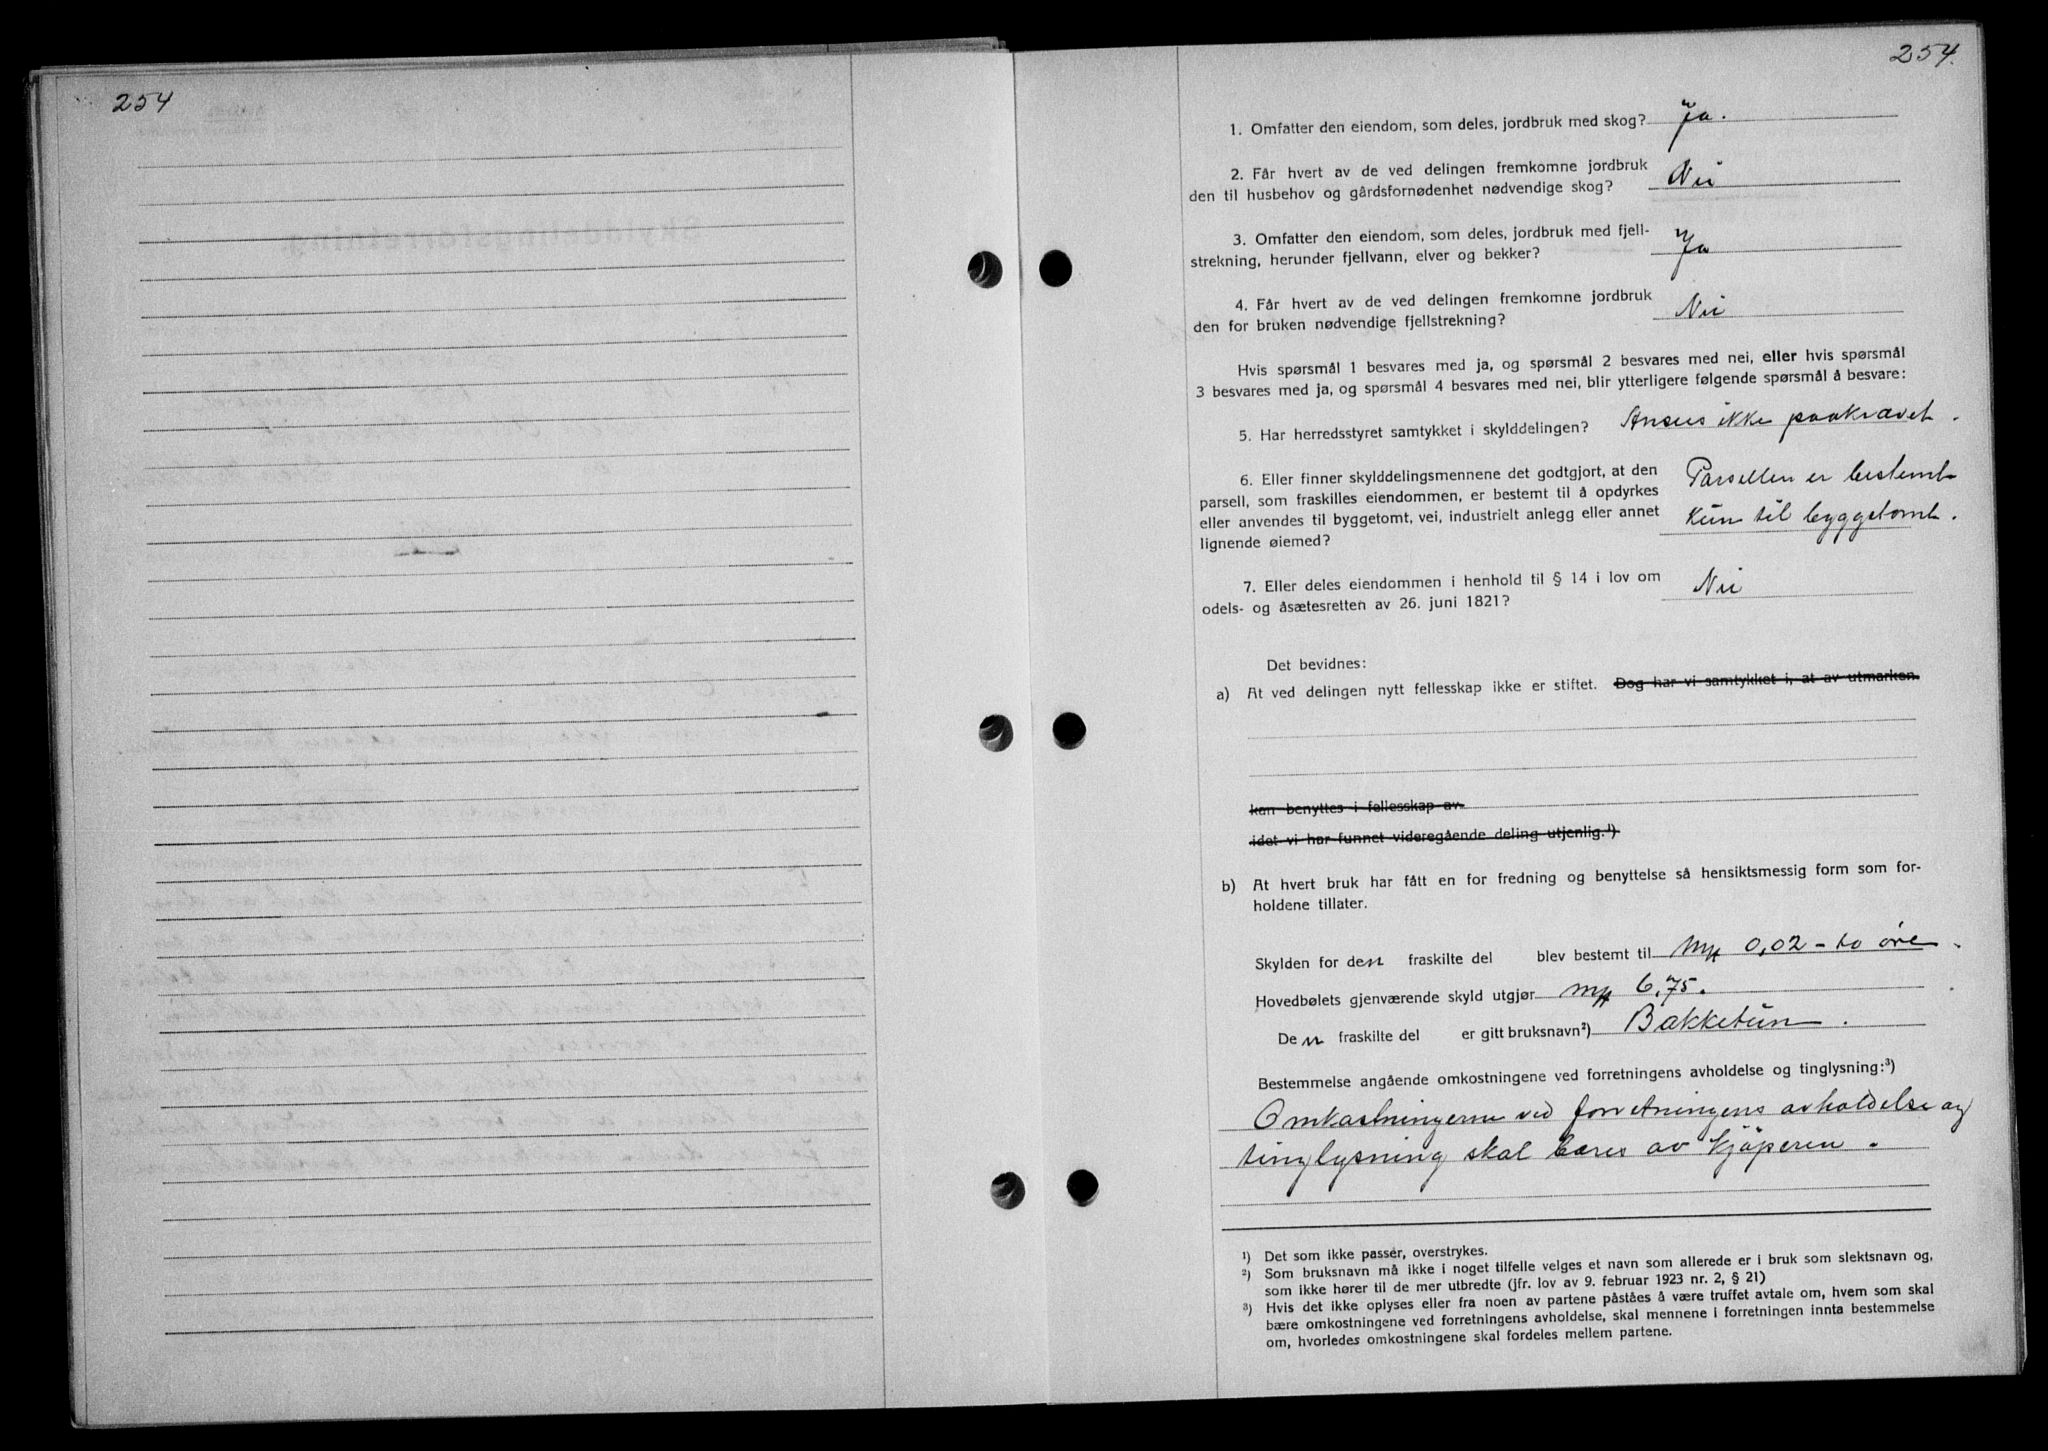 254
254.
1. Omfatter den eiendom, som deles, jordbruk med skog? Ja.
2. Får hvert av de ved delingen fremkomne jordbruk
den til husbehov og gårdsfornødenhet nødvendige skog? Nei
3. Omfatter den eiendom, som deles, jordbruk med fjell-
strekning, herunder fjellvann, elver og bekker? Ja
4. Får hvert av de ved delingen fremkomne jordbruk
den for bruken nødvendige fjellstrekning? Nei
Hvis spørsmål 1 besvares med ja, og spørsmål 2 besvares med nei, eller hvis spørsmål
3 besvares med ja, og spørsmål 4 besvares med nei, blir ytterligere følgende spørsmål å besvare:
5. Har herredsstyret samtykket i skylddelingen? Ansees ikke paakrævet.
6. Eller finner skylddelingsmennene det godtgjort, at den
parsell, som fraskilles eiendommen, er bestemt til å opdyrkes Parsellen er bestemt
eller anvendes til byggetomt, vei, industrielt anlegg eller annet kun til byggetomt.
lignende øiemed?
7. Eller deles eiendommen i henhold til § 14 i lov om Nei
odels- og åsætesretten av 26. juni 1821?
Det bevidnes:
a) At ved delingen nytt fellesskap ikke er stiftet. Dog har vi samtykket i, at av utmarken.
kan benyttes i fellesskap av
idet vi har funnet videregående deling utjenlig.¹)
b) At hvert bruk har fått en for fredning og benyttelse så hensiktsmessig form som for-
holdene tillater.
Skylden for den fraskilte del blev bestemt til Mk 0,02 - to øre.
Hovedbølets gjenværende skyld utgjør mk 6,75.
Den fraskilte del er gitt bruksnavn²) Bakketun.
Bestemmelse angående omkostningene ved forretningens avholdelse og tinglysning:³)
Omkostningerne ved forretningens avholdelse og
tinglysning skal bæres av kjöperen.
¹) Det som ikke passer, overstrykes.
²) Som bruksnavn må ikke i noget tilfelle velges et navn som allerede er i bruk som slektsnavn og,
som ikke hører til de mer utbredte (jfr. lov av 9. februar 1923 nr. 2, § 21)
³) Hvis det ikke oplyses eller fra noen av partene påståes å være truffet avtale om, hvem som skal
bære omkostningene ved forretningens avholdelse, skal mennene i forretningen innta bestemmelse
om, hvorledes omkostningene skal fordeles mellem partene.